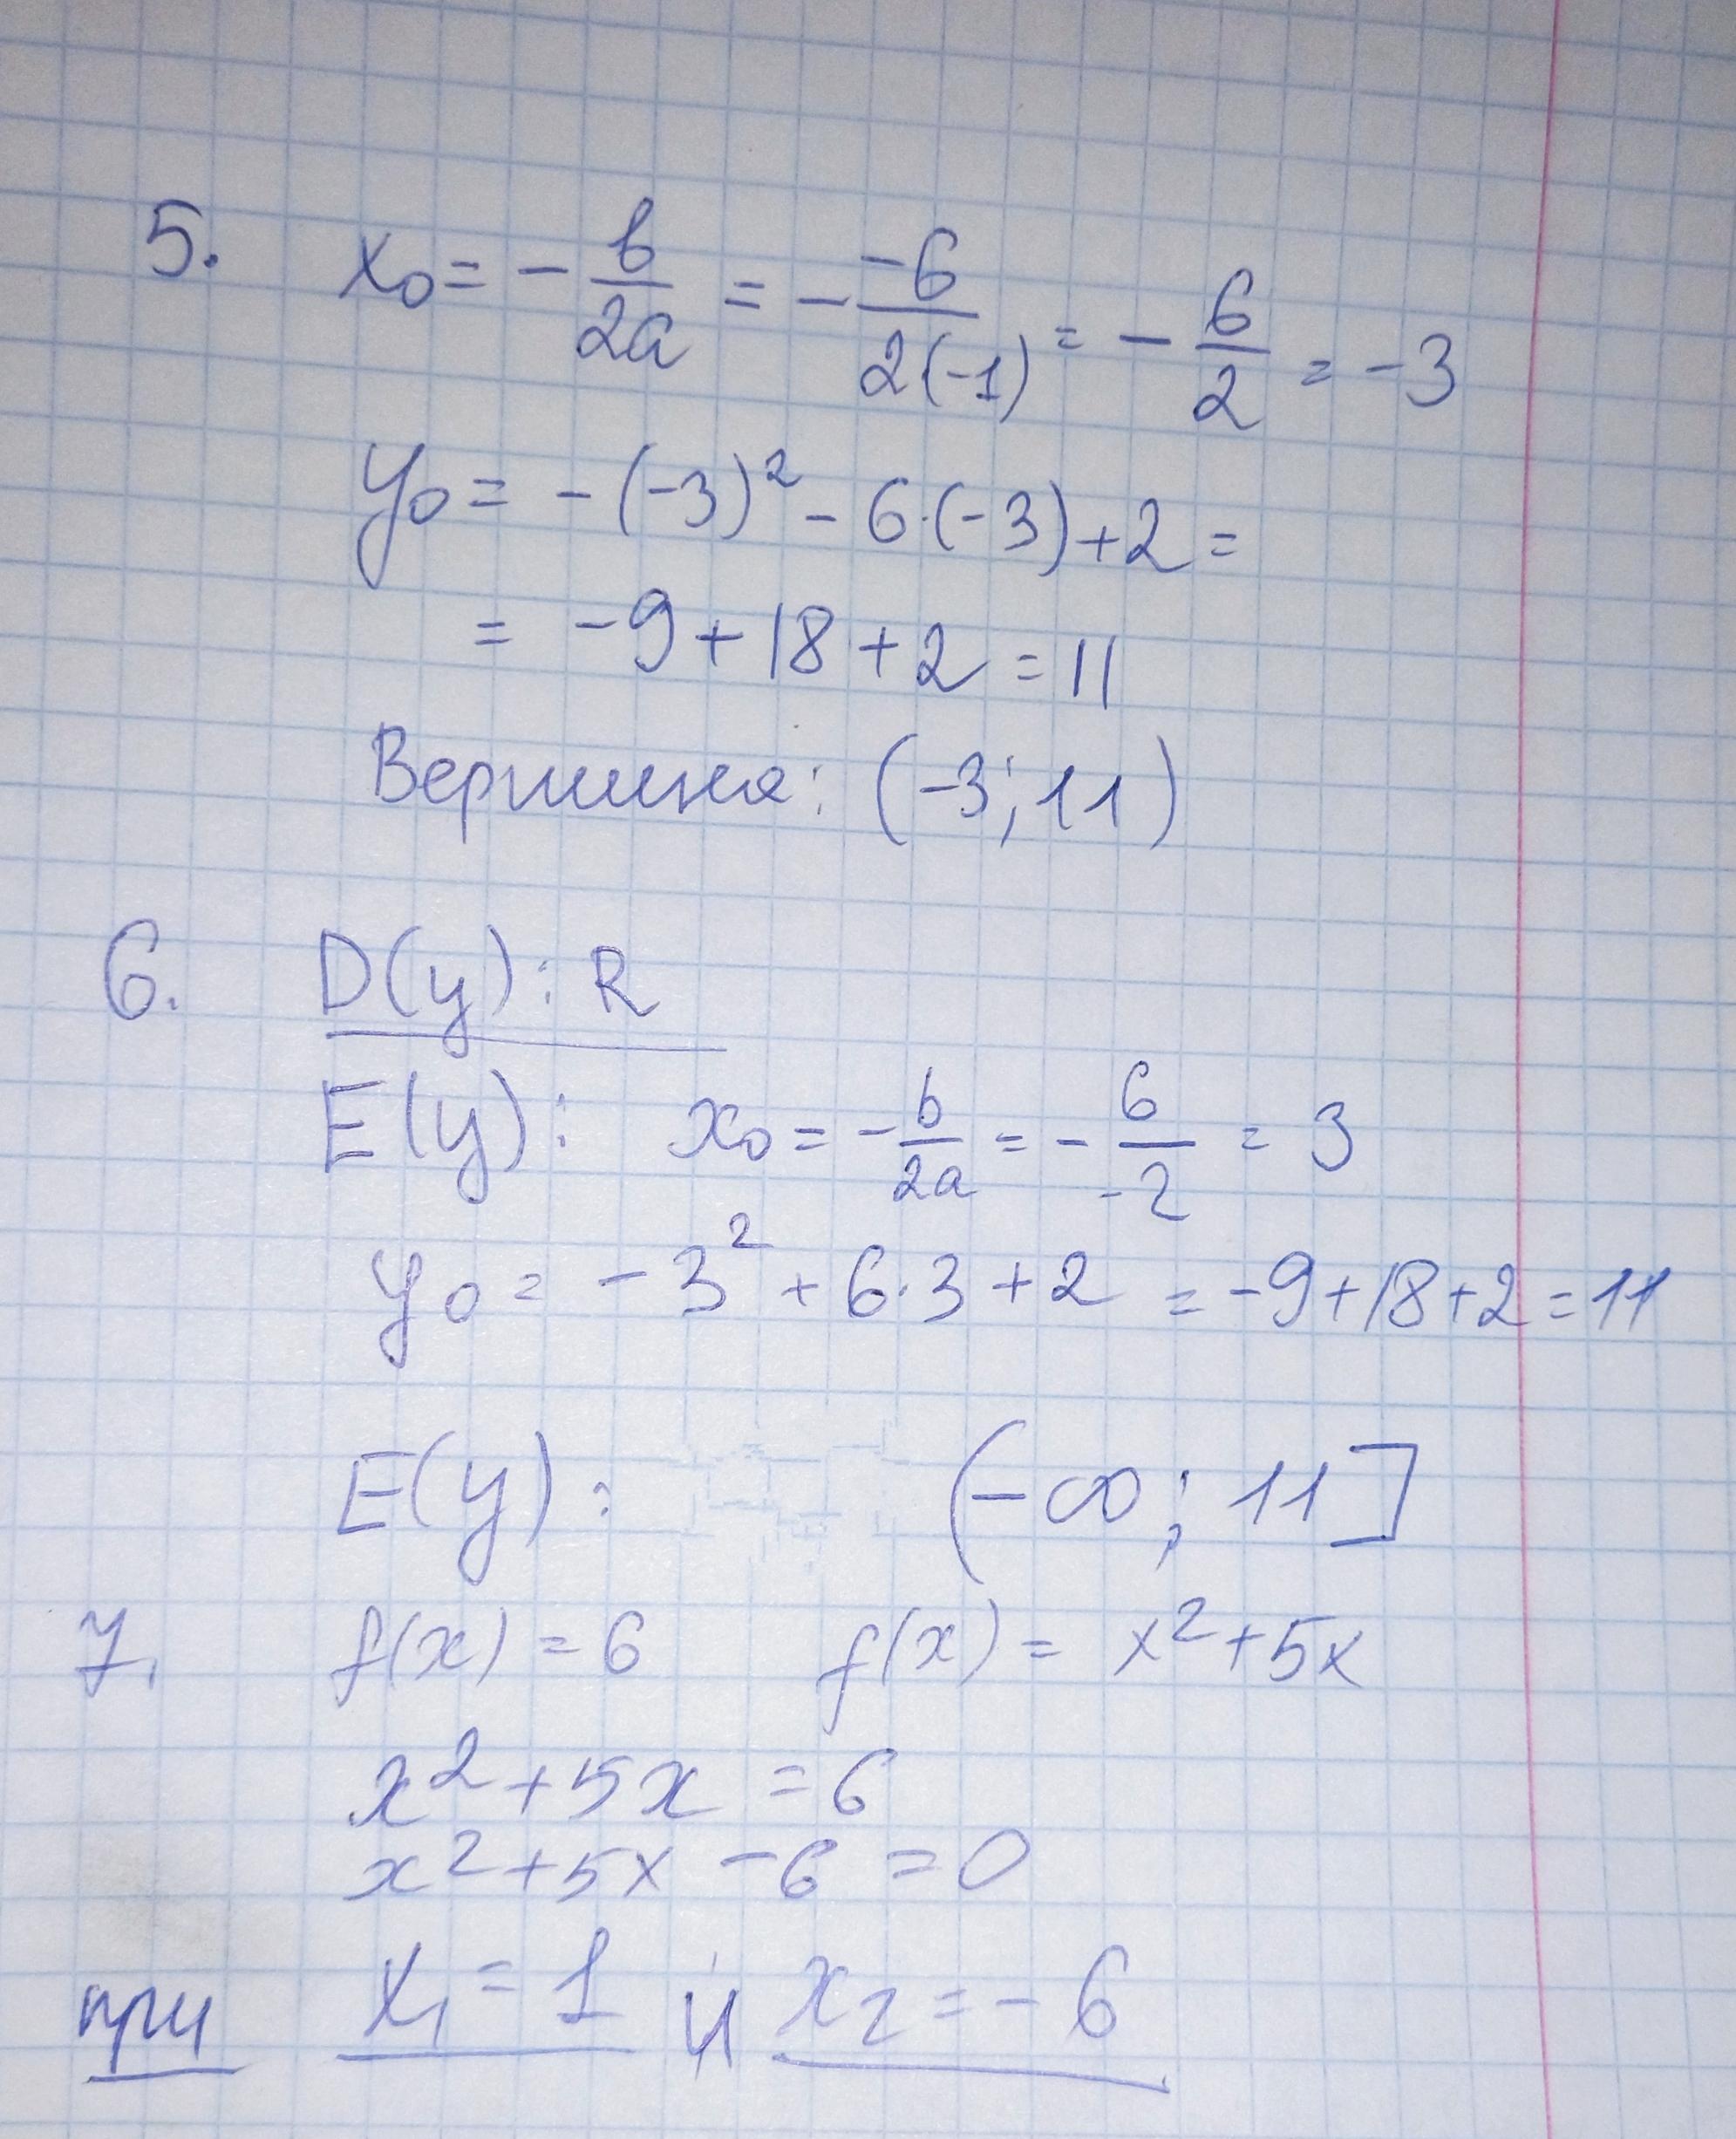 5. x₀ = -b/2a = - -6/2(-1) = -6/2 = -3
y₀ = -(-3)² - 6·(-3) + 2 =
= -9 + 18 + 2 = 11
Вершина: (-3; 11)
6. D(y): R
E(y): x₀ = -b/2a = -6/-2 = 3
y₀ = -3² + 6·3 + 2 = -9 + 18 + 2 = 11
E(y): (-∞; 11]
7. f(x) = 6 f(x) = x² + 5x
x² + 5x = 6
x² + 5x - 6 = 0
при x₁ = 1 и x₂ = -6